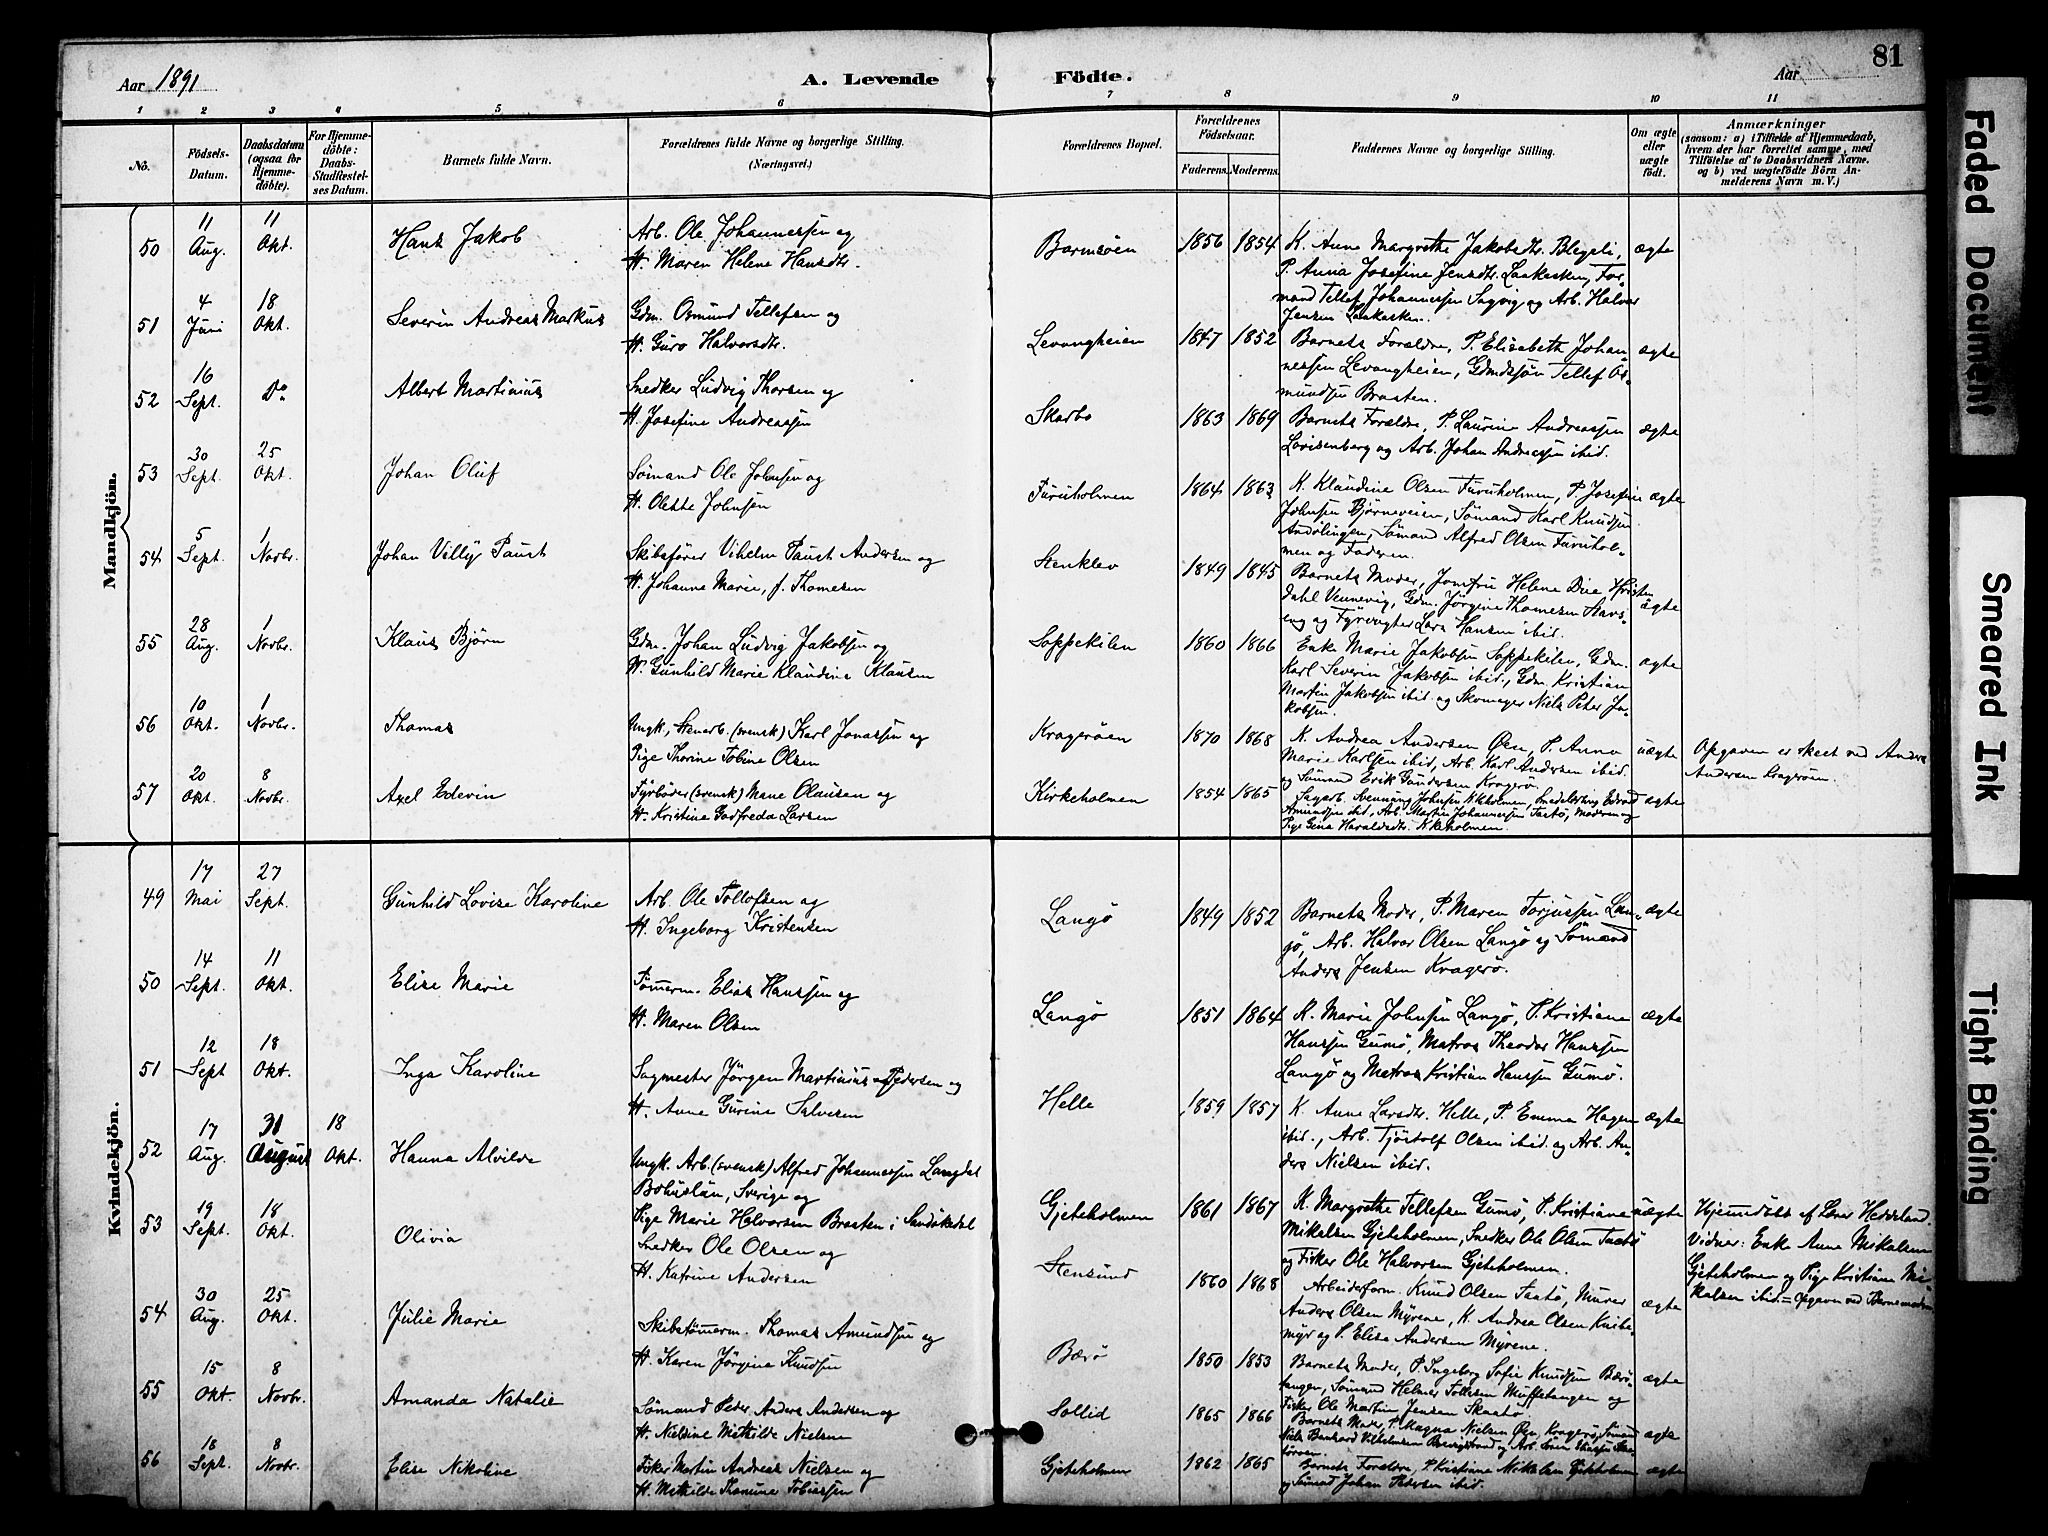 81
Aar 1891
A. Levende
Födte.
Aar
1 2 3 4 5 6 7 8 9 10 11
No.
Födsels-Datum.
Daabsdatum (ogsaa for Hjemmedöbte).
For Hjemmedöbte: Daabs-Stadfæstelses Datum.
Barnets fulde Navn.
Forældrenes fulde Navne og borgerlige Stilling. (Næringsvei.)
Forældrenes Bopæl.
Forældrenes Födselsaar.
Faderens. Moderens.
Faddernes Navne og borgerlige Stilling.
Om ægte eller uægte födt.
Anmærkninger
(saasom: a) i Tilfælde af Hjemmedaab, hvem der har forrettet samme, med Tilföielse af to Daabsvidners Navne, og b) ved uægtefödte Börn Anmelderens Navn m. V.)
Mandkjön.
50 11 Aug. 11 Okt. Hans Jakob
Arb. Ole Johannessen og
H. Maren Helene Hansdtr.
Barmsöen 1856 1854
K. Anne Margrethe Jakobsdtr. Blegeli,
P. Anna Josefine Jensdtr. Laakasken, For-
mand Tellef Johannessen Sagvig og Arb. Halvor
Jensen Laakasken.
ægte
51 4 Juni 18 Okt. Severin Andreas Markus
Gdm. Osmund Tellefsen og
H. Guro Halvorsdtr.
Levangheien 1847 1852
Barnets Forældre, P. Elisabeth Johan-
nessen Levangheien, Gdmdsøn Tellef Os-
mundsen Braaten.
ægte
52 16 Sept. Do Albert Martinius
Snedker Ludvig Thorsen og
H. Josefine Andreassen
Skarbo 1863 1869
Barnets Forældre, P. Laurine Andreassen
Lovisenberg og Arb. Johan Andreassen ibid.
ægte
53 30 Sept. 25 Okt. Johan Oluf
Sømand Ole Johnsen og
H. Olette Johnsen
Furuholmen 1864 1863
K. Klaudine Olsen Furuholmen, P. Josefine
Johnsen Bjørneveien, Sømand Karl Knudsen
Andølingen, Sømand Alfred Olsen Furuhol-
men og Faderen.
ægte
54 5 Sept. 1 Novbr. Johan Villÿ Paust
Skibsfører Vilhelm Paust Andersen og
H. Johanne Marie, f. Thomesen
Stenklev 1849 1845
Barnets Moder, Jomfru Helene Dine
dahl Vennevig, Gdm. Jörgine Thomesen Stavs-
eng og Fyrvogter Lars Hansen ibid.
ægte
55 28 Aug. 1 Novbr. Klaus Bjørn
Gdm. Johan Ludvig Jakobsen og
H. Gunhild Marie Klaudine Klausen
Soppekilen 1860 1866
Enke Marie Jakobsen Soppekilen, Gdm.
Karl Severin Jakobsen ibid., Gdm. Kristian
Martin Jakobsen ibid. og Skomager Niels Peter Ja-
kobsen.
ægte
56 10 Okt. 1 Novbr. Thomas
Ungk., Stenarb. (svensk) Karl Jonassen og
Pige Thorine Tobine Olsen
Kragerøen 1870 1868
K. Andrea Andersen Øen, P. Anna
Marie Karlsen ibid., Arb. Karl Andersen ibid.
og Sømand Erik Gundersen Kragerø.
uægte
Opgaven er skeet ved Anders
Andersen Kragerøen.
57 20 Okt. 8 Novbr. Axel Edevin
Fyrbøder (svensk) Mane Olausen og
H. Kristine Godfreda Larsen
Kirkeholmen 1854 1865
Sagarb. Svenning Johnsen Kkholmen,
Amundsen ibid., Arb. Martin Johannessen Taatø, Moderen og
Pige Gina Haraldsdtr. Kkholmen.
ægte
Kvindekjön.
49 17 Mai 27 Sept. Gunhild Lovise Karoline
Arb. Ole Tollofsen og
H. Ingeborg Kristensen
Langø 1849 1852
Barnets Moder, P. Maren Torjussen Lan-
gø, Arb. Halvor Olsen Langø og Sømand
Anders Jensen Kragerø.
ægte
50 14 Sept. 11 Okt. Elise Marie
Tømmerm. Elias Hanssen og
H. Maren Olsen
Langø 1851 1864
K. Marie Johnsen Langø, P. Kristiane
Hanssen Gumø, Matros Theodor Hanssen
Langø og Matros Kristian Hanssen Gumø.
ægte
51 12 Sept 18 Okt. Inga Karoline
Sagmester Jörgen Martinius Pedersen og
H. Anne Gurine Salvesen
Helle 1859 1857
K. Anne Larsdtr. Helle, P. Emma Hagen
ibid., Arb. Tjöstolf Olsen ibid. og Arb. An-
ders Nielsen ibid.
ægte
52 17 Aug. 31 August 18 Okt. Hanna Alvilde
Ungk. Arb. (svensk) Alfred Johannessen Langdal
Bohuslän, Sverige og
Pige Marie Halvorsen Braaten i Sandøkedal
Gjeteholmen 1861 1867
K. Margrethe Tellefsen Gumø, P. Kristiane
Mikalsen Gjeteholmen, Snedker Ole Olsen Taatø
og Fisker Ole Halvorsen Gjeteholmen.
uægte
Hjemmedøbt af Lærer Heddeland.
Vidner: Enke Anne Mikalsen
Gjeteholmen og Pige Kristiane Mi-
kalsen ibid. = Opgaven ved Barnemoderen
53 19 Sept. 18 Okt. Olivia
Snedker Ole Olsen og
H. Katrine Andersen
Stensund 1860 1868
Arbeiderform. Knud Olsen Taatø, Murer
Anders Olsen Myrene, K. Andrea Olsen Knibe-
myr og P. Elise Andersen Myrene.
ægte
54 30 Aug. 25 Okt. Julie Marie
Skibstømmerm. Thomas Amundsen og
H. Karen Jörgine Knudsen
Bærø 1850 1853
Barnets Moder, P. Ingeborg Sofie Knudsen Bærø-
tangen, Sømand Helmer Tollesen Muffetangen og
Fisker Ole Martin Jensen Skaatø.
ægte
55 15 Okt. 8 Novbr. Amanda Natalie
Sømand Peder Anders Andersen og
H. Nielsine Mathilde Nielsen
Sollid 1865 1866
Barnets Moder, P. Magna Nielsen Øen, Kragerø, Sømand
Niels Bernhard Vilhelmsen
ægte
56 18 Sept. 8 Novbr. Elise Nikoline
Fisker Martin Andreas Nielsen og
H. Mathilde Thomine Tobiassen
Gjeteholmen 1862 1865
Barnets Forældre, P. Kristiane Mikalsen Gjeteholmen
og Sømand Johan Pedersen ibid.
ægte
Faded Document
Smeared Ink
Tight Binding